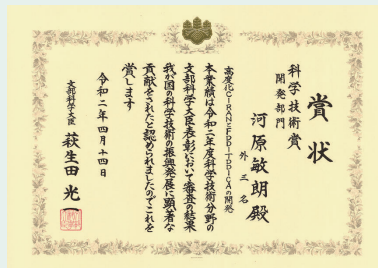 賞状
科学技術賞
開発部門
河原敏朗殿
外三名
本業績は令和二年度科学技術分野の
文部科学大臣表彰において審査の結果
我が国の科学技術の振興発展に顕著な
貢献をされたと認められましたのでこれを
賞します
令和二年四月十四日
文部科学大臣
萩生田光一